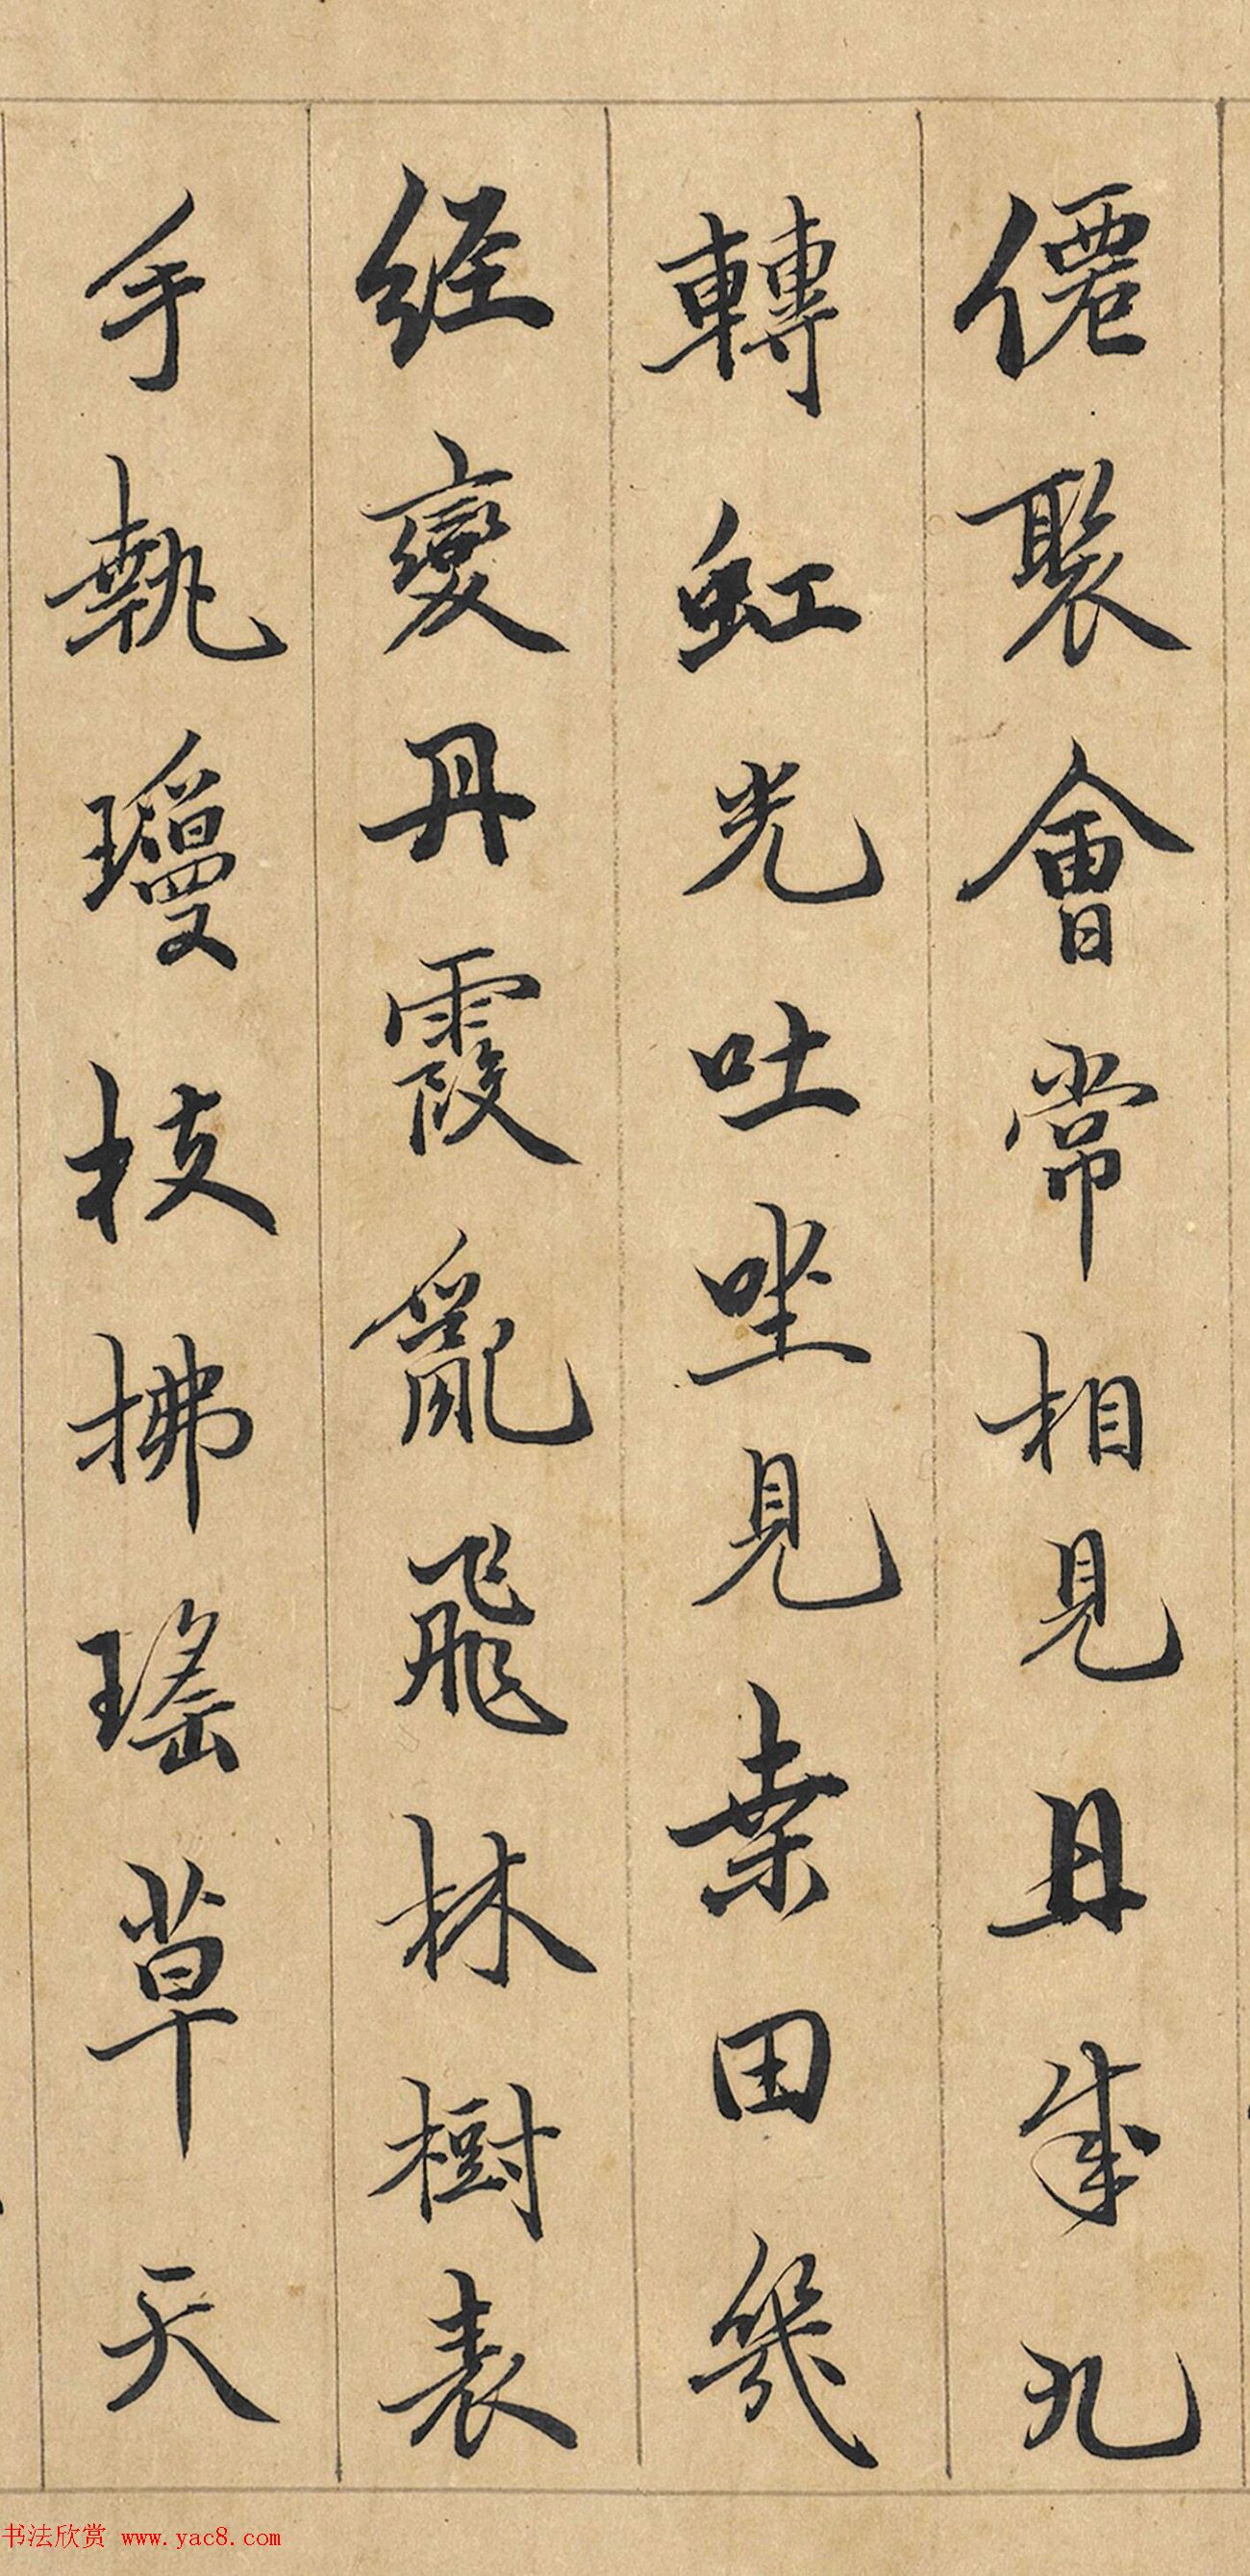 僊聚會常相見且成九
轉虹光吐坐見桒田幾
經變丹霞亂飛林樹表
手執瓊枝拂瑤草天
书法欣赏 www.yac8.com